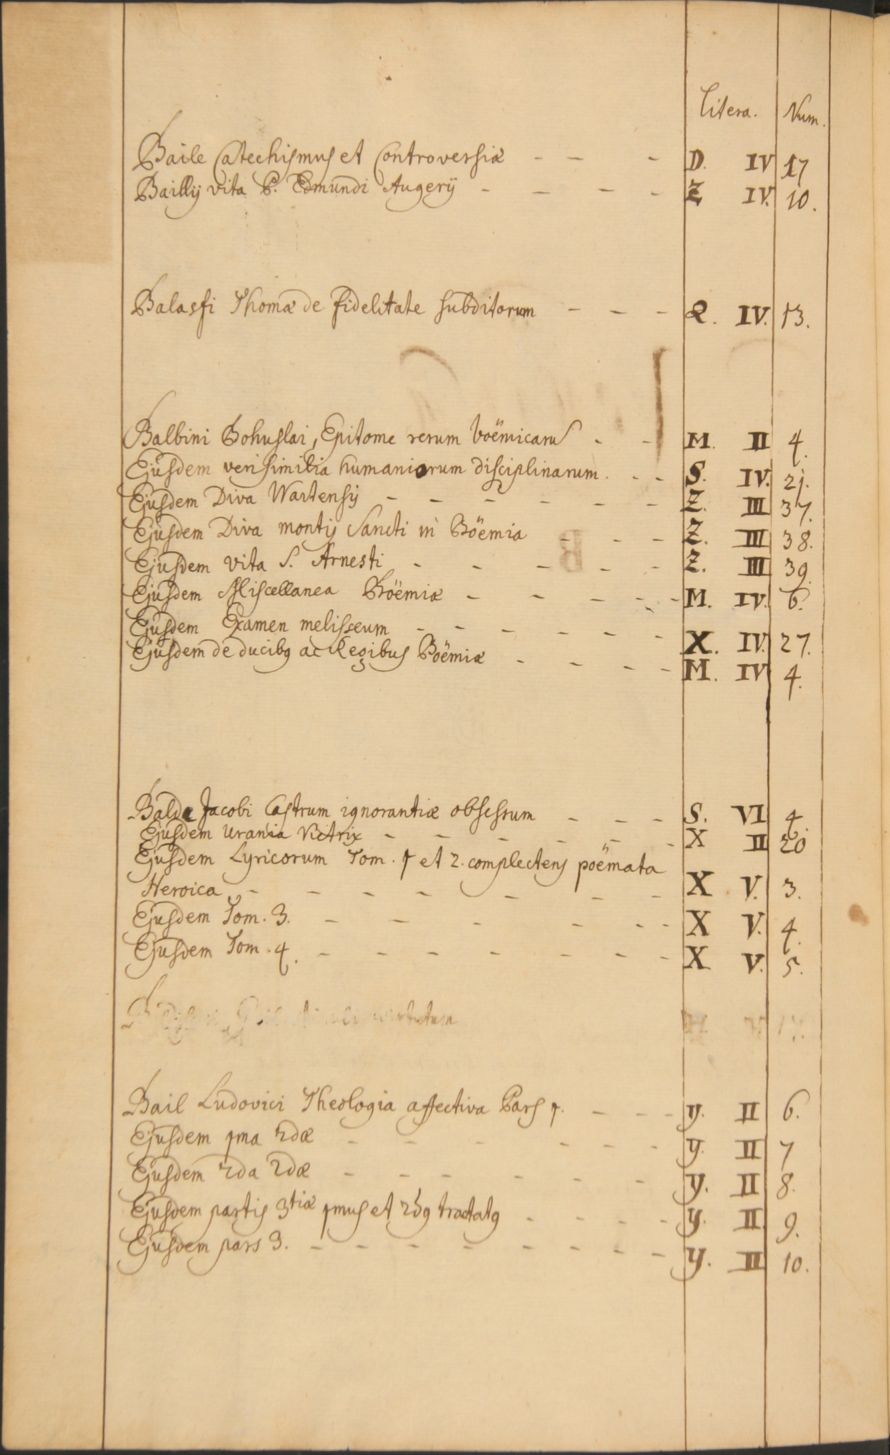 Litera. Num.
Baile Catechismus et Controversiæ - - - D. IV 17
Bailly vita P. Edmundi Augerÿ - - - - Z IV. 10.
Balasfi Thomæ de fidelitate subditorum - - - Q. IV. 13.
Balbini Bohuslai, Epitome rerum boëmicarū - - M. II 4.
Ejusdem verisimilia humaniorum disciplinarum. - - S. IV. 21.
Ejusdem Diva Wartensis - - - - - - Z. III 37.
Ejusdem Diva montis Sancti in Böemia - - - Z. III 38.
Ejusdem vita S. Arnesti - - - - - - Z. III 39.
Ejusdem Miscellanea Böëmiæ - - - - - M. IV. 6.
Ejusdem Examen melissæum - - - - - - X. IV. 27.
Ejusdem de ducibg ac Regibus Böëmiæ - - - - M. IV 4.
Balde Jacobi Castrum ignorantiæ obsessum - - - S. VI 4.
Ejusdem Urania Victrix - - - - - - X II 20
Ejusdem Lyricorum Tom. 1 et 2. complectens poëmata
Heroica - - - - - - - - X V. 3.
Ejusdem Tom. 3. - - - - - X V. 4.
Ejusdem Tom. 4. - - - - - - - X V. 5.
Bail Ludovici Theologia affectiva Pars 1. - - - - y. II 6.
Ejusdem 1ma 2dæ - - - - - - y. II 7
Ejusdem 2da 2dæ - - - - - - y. II 8.
Ejusdem partis 3tiæ 1mus et 2dg tractatg - - - - y. II 9.
Ejusdem pars 3. - - - - - - - - y. II 10.